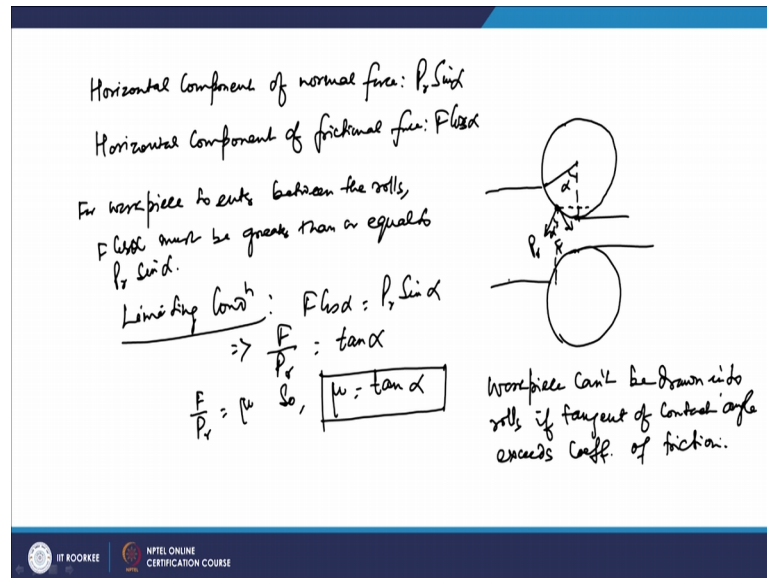 Horizontal Component of normal force: Pr Sinα
Horizontal Component of frictional force: F Cosα
For workpiece to enter between the rolls,
F Cosα must be greater than or equal to
Pr Sinα.
Limiting Condⁿ: F Cosα = Pr Sinα
=> F/Pr = tanα
F/Pr = μ So, μ = tanα
α
Pr
α
F
Workpiece Can't be drawn into
rolls if tangent of Contact angle
exceeds Coeff. of friction.
IIT ROORKEE
NPTEL ONLINE
CERTIFICATION COURSE